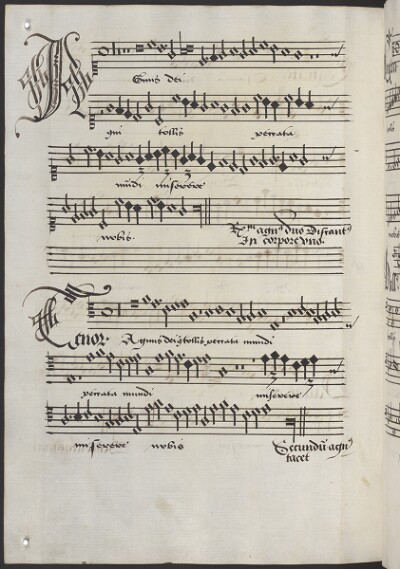 Agnus dei
qui tollis peccata
mundi miserere
nobis.
agn⁹ duo Bistant
In corpore vno.
Tenor. Agnus dei q̄ tollis peccata mundi
peccata mundi miserere
miserere nobis
Secundū agn⁹
tacet